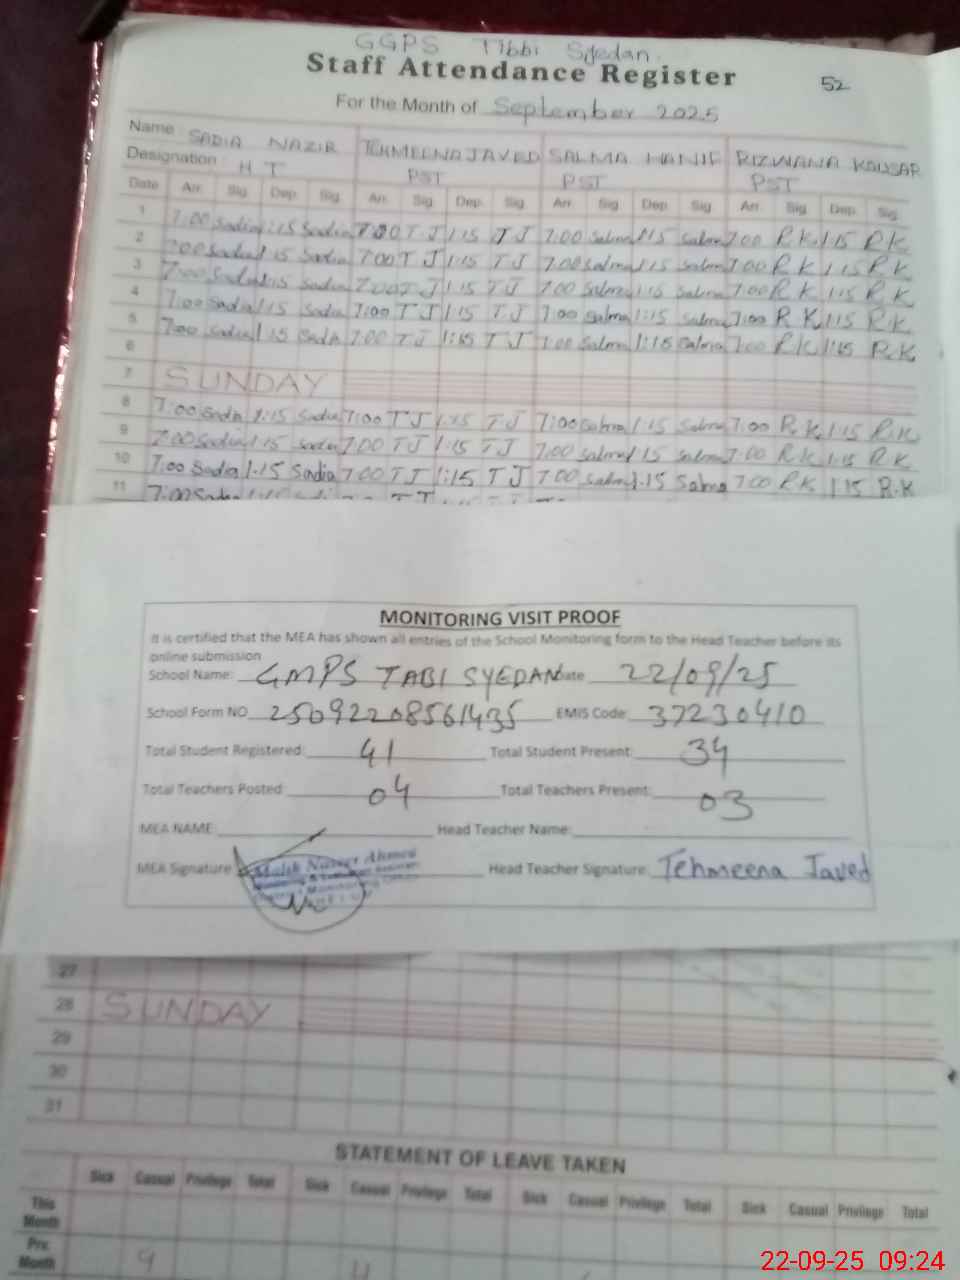 GGPS Tibbi Syedan.
Staff Attendance Register
52
For the Month of September 2025
Name SADIA NAZIR TEHMEENA JAVED SALMA HANIF RIZWANA KAUSAR
Designation H T PST PST
Date Arr. Sig Dep. Sig Arr. Sig. Dep. Sig. Arr. Sig Dep. Sig Arr. Sig. Dep. Sig.
1 7:00 Sadia 1:15 Sadia 7:00 T J 1:15 T J 7:00 Salma 1:15 Salma 7:00 R K 1:15 R K
2 7:00 Sadia 1:15 Sadia 7:00 T J 1:15 T J 7:00 Salma 1:15 Salma 7:00 R K 1:15 R K
3 7:00 Sadia 1:15 Sadia 7:00 T J 1:15 T J 7:00 Salma 1:15 Salma 7:00 R K 1:15 R K
4 7:00 Sadia 1:15 Sadia 7:00 T J 1:15 T J 7:00 Salma 1:15 Salma 7:00 R K 1:15 R K
5 7:00 Sadia 1:15 Sadia 7:00 T J 1:15 T J 7:00 Salma 1:15 Salma 7:00 R K 1:15 R K
6
7 SUNDAY
8 7:00 Sadia 1:15 Sadia 7:00 T J 1:15 T J 7:00 Salma 1:15 Salma 7:00 R K 1:15 R.K
9 7:00 Sadia 1:15 Sadia 7:00 T J 1:15 T J 7:00 Salma 1:15 Salma 7:00 R K 1:15 R K
10 7:00 Sadia 1:15 Sadia 7:00 T J 1:15 T J 7:00 Salma 1:15 Salma 7:00 R K 1:15 R.K
11 7:00 Sadia
MONITORING VISIT PROOF
It is certified that the MEA has shown all entries of the School Monitoring form to the Head Teacher before its
online submission
School Name: GMPS TABI SYEDAN Date 22/09/25
School Form NO 25092208561435 EMIS Code: 37230410
Total Student Registered: 41 Total Student Present: 34
Total Teachers Posted: 04 Total Teachers Present: 03
MEA NAME: Head Teacher Name:
MEA Signature Malik Ahmed Head Teacher Signature: Tehmeena Javed
27
28 SUNDAY
29
30
31
STATEMENT OF LEAVE TAKEN
Sick Casual Privilege Total Sick Casual Privilege Total Sick Casual Privilege Total Sick Casual Privilege Total
This Month
Prv. Month
22-09-25 09:24